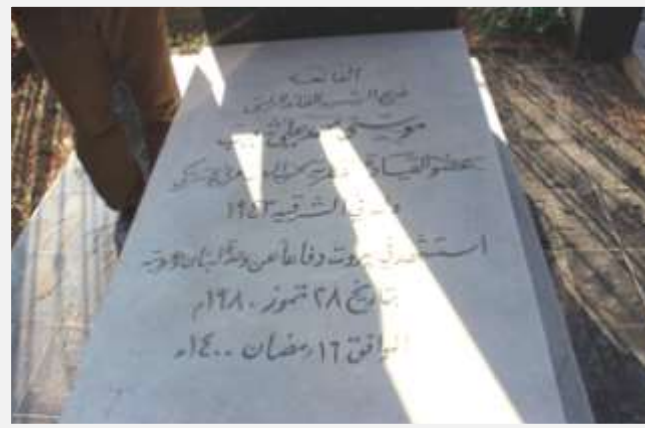 الفاتحة
ضريح الشهيد القائد الرفيق
موسى محمد علي شعيب
عضو القيادة
ولد في الشرقية ١٩٤٣
استشهد في بيروت دفاعا عن وحدة لبنان وعروبته
بتاريخ ٢٨ تموز ١٩٨٠م
الموافق ١٦ رمضان ١٤٠٠هـ